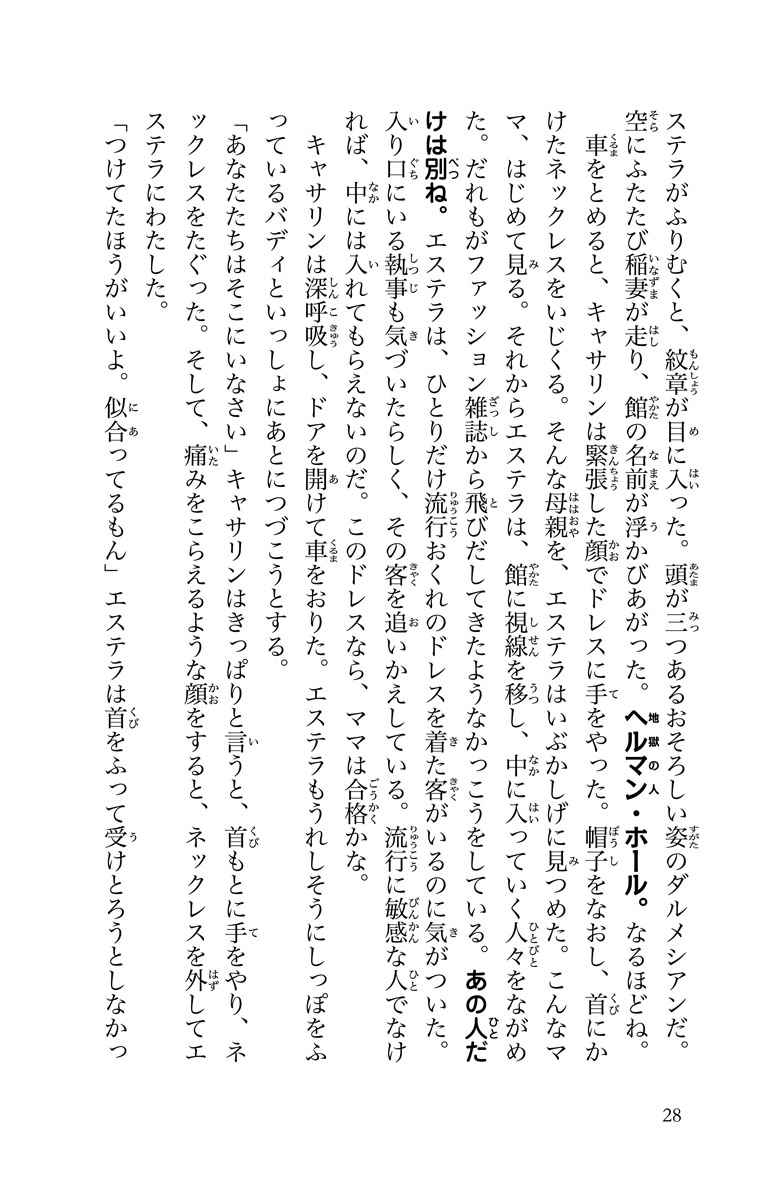 ステラがふりむくと、紋章が目に入った。頭が三つあるおそろしい姿のダルメシアンだ。
空にふたたび稲妻が走り、館の名前が浮かびあがった。ヘルマン・ホール。なるほどね。
車をとめると、キャサリンは緊張した顔でドレスに手をやった。帽子をなおし、首にか
けたネックレスをいじくる。そんな母親を、エステラはいぶかしげに見つめた。こんなマ
マ、はじめて見る。それからエステラは、館に視線を移し、中に入っていく人々をながめ
た。だれもがファッション雑誌から飛びだしてきたようなかっこうをしている。あの人だ
けは別ね。エステラは、ひとりだけ流行おくれのドレスを着た客がいるのに気がついた。
入り口にいる執事も気づいたらしく、その客を追いかえしている。流行に敏感な人でなけ
れば、中には入れてもらえないのだ。このドレスなら、ママは合格かな。
キャサリンは深呼吸し、ドアを開けて車をおりた。エステラもうれしそうにしっぽをふ
っているバディといっしょにあとにつづこうとする。
「あなたたちはそこにいなさい」キャサリンはきっぱりと言うと、首もとに手をやり、ネ
ックレスをたぐった。そして、痛みをこらえるような顔をすると、ネックレスを外してエ
ステラにわたした。
「つけてたほうがいいよ。似合ってるもん」エステラは首をふって受けとろうとしなかっ
28